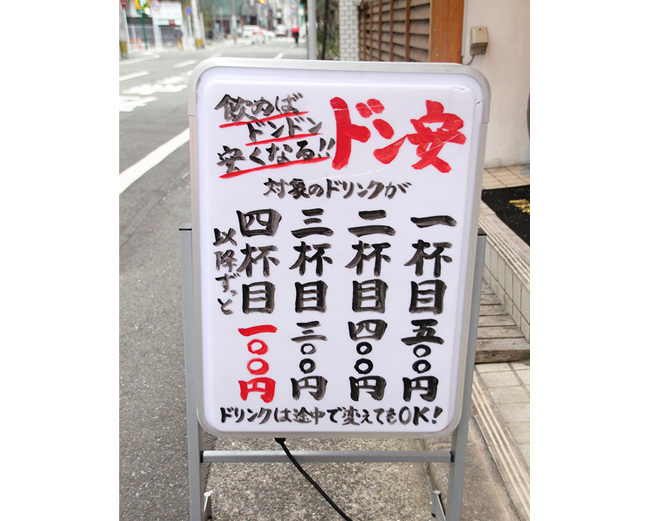 飲めば
ドンドン
安くなる!!
ドン安
対象のドリンクが
一杯目五〇〇円
二杯目四〇〇円
三杯目三〇〇円
四杯目一〇〇円
以降ずっと
ドリンクは途中で変えてもOK!